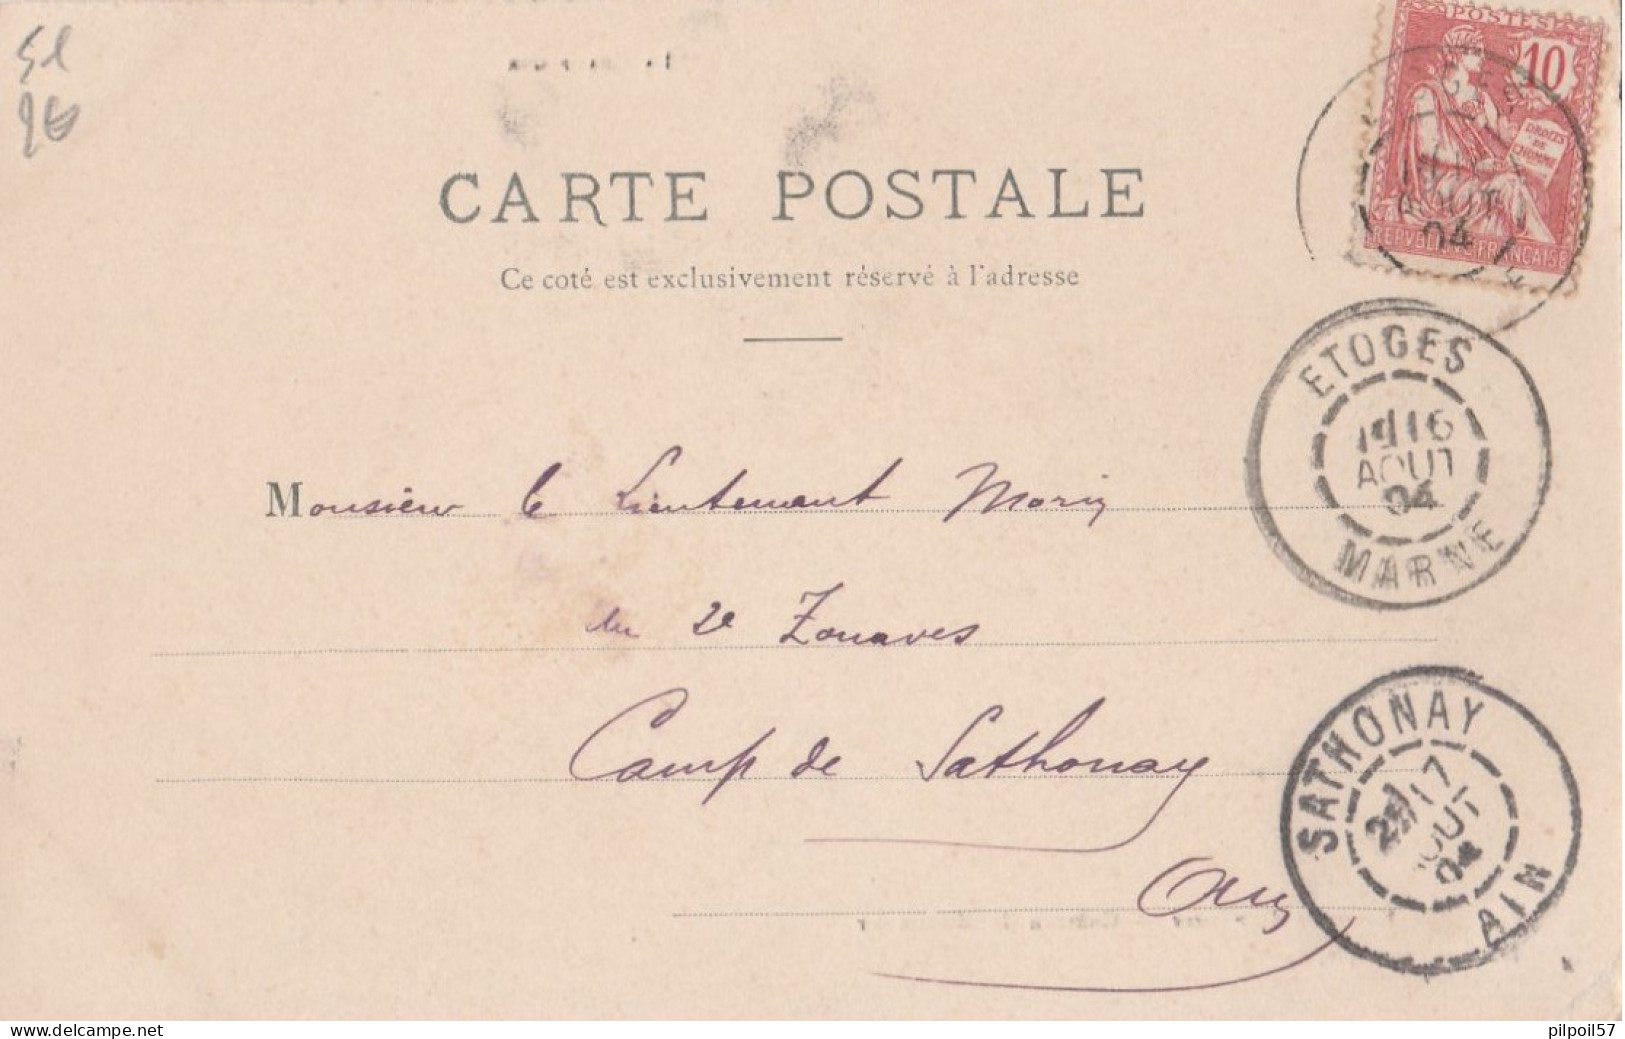 51
CARTE POSTALE
Ce coté est exclusivement réservé à l'adresse
POSTES
10
DROITS
DE
L'HOMME
REPVBLIQVE FRANÇAISE
AOUT
04
ETOGES
16
AOUT
04
MARNE
Monsieur le Lieutenant Morin
du 2e Zouaves
Camp de Sathonay
Ain
SATHONAY
2E 17
AOUT
04
AIN
www.delcampe.net
pilpoil57